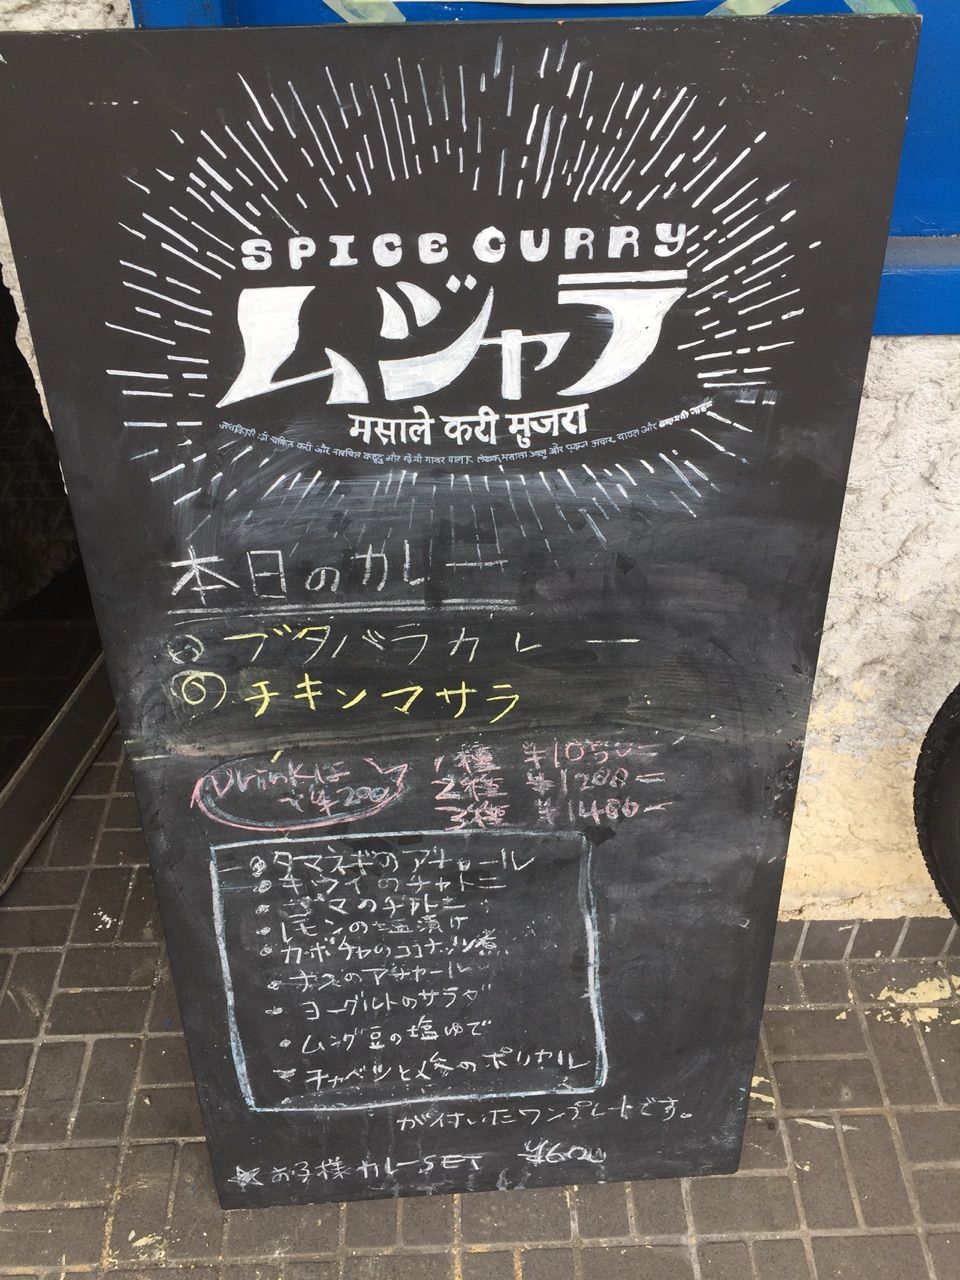 SPICE CURRY
ムジャラ
मसाले करी मुजरा
本日のカレー
ブタバラカレー
チキンマサラ
Drinkは
¥200
1種 ¥1050ー
2種 ¥1200ー
3種 ¥1400ー
・タマネギのアチャール
・キウイのチャトニ
・ゴマのチャトニ
・レモンの塩漬け
・カボチャのココナッツ煮
・ナスのアチャール
・ヨーグルトのサラダ
・ムング豆の塩ゆで
キャベツと のポリヤル
が付いたワンプレートです。
☆お子様カレーSET ¥600